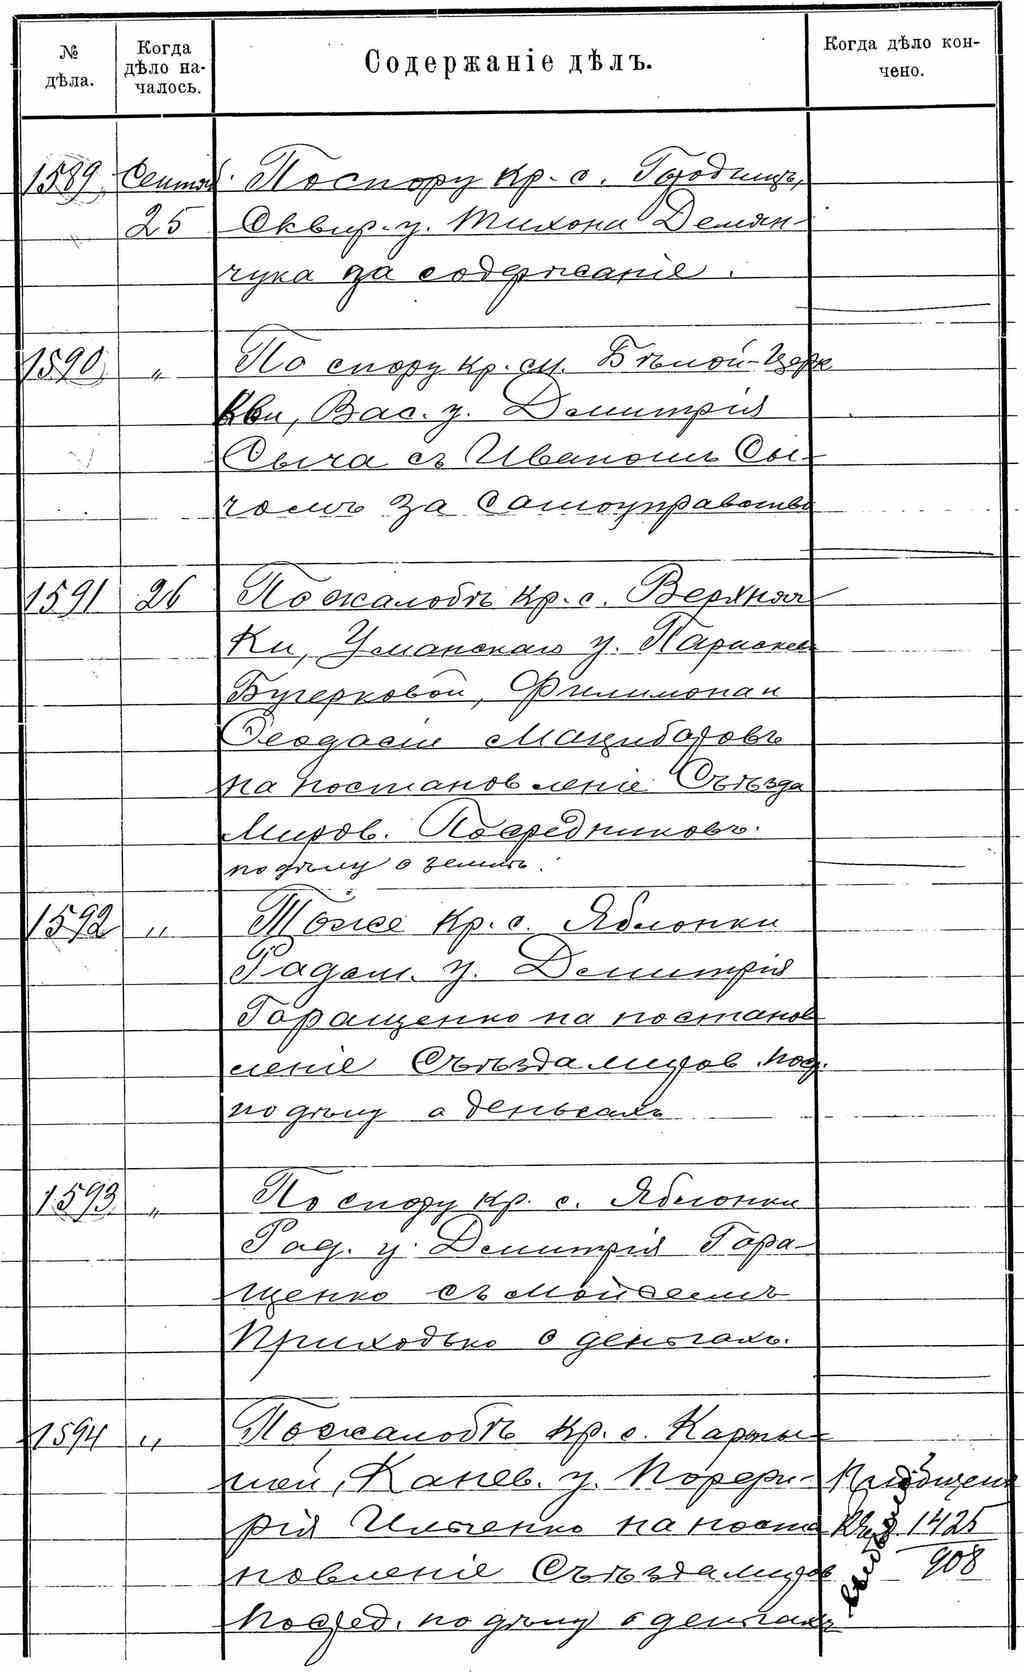 № дѣла.
Когда дѣло на-чалось.
Содержаніе дѣлъ.
Когда дѣло кон-чено.
1589 Сентяб. По спору кр. с.
25 Сквир. у. Тихона Демян-
чука за содержаніе.
1590 " По спору кр. м. Бѣлой-Церк
кви, Вас. у. Дмитрія
Сыча съ Иваномъ Сы-
чомъ за самоуправство
1591 26 По жалобѣ кр. с. Верхняч-
ки, Уманскаго у. Параскев.
Бугерковой, Филимона и
Феодосіи Мацибаровъ
на постановленіе Съѣзда
Миров. Посредниковъ.
по дѣлу о землѣ.
1592 " Тоже кр. с. Яблонки
Радом. у. Дмитрія
Горащенко на постанов
леніе Съѣзда миров. пос.
по дѣлу о деньгахъ
1593 " По спору кр. с. Яблонки
Рад. у. Дмитрія Гора-
щенко съ Мойсеемъ
Приходько о деньгахъ.
1594 " По жалобѣ кр. с.
Канев. у. Порфи-
рія Ильченко на поста
новленіе Съѣзда миров
посред. по дѣлу о деньгахъ
1425
908